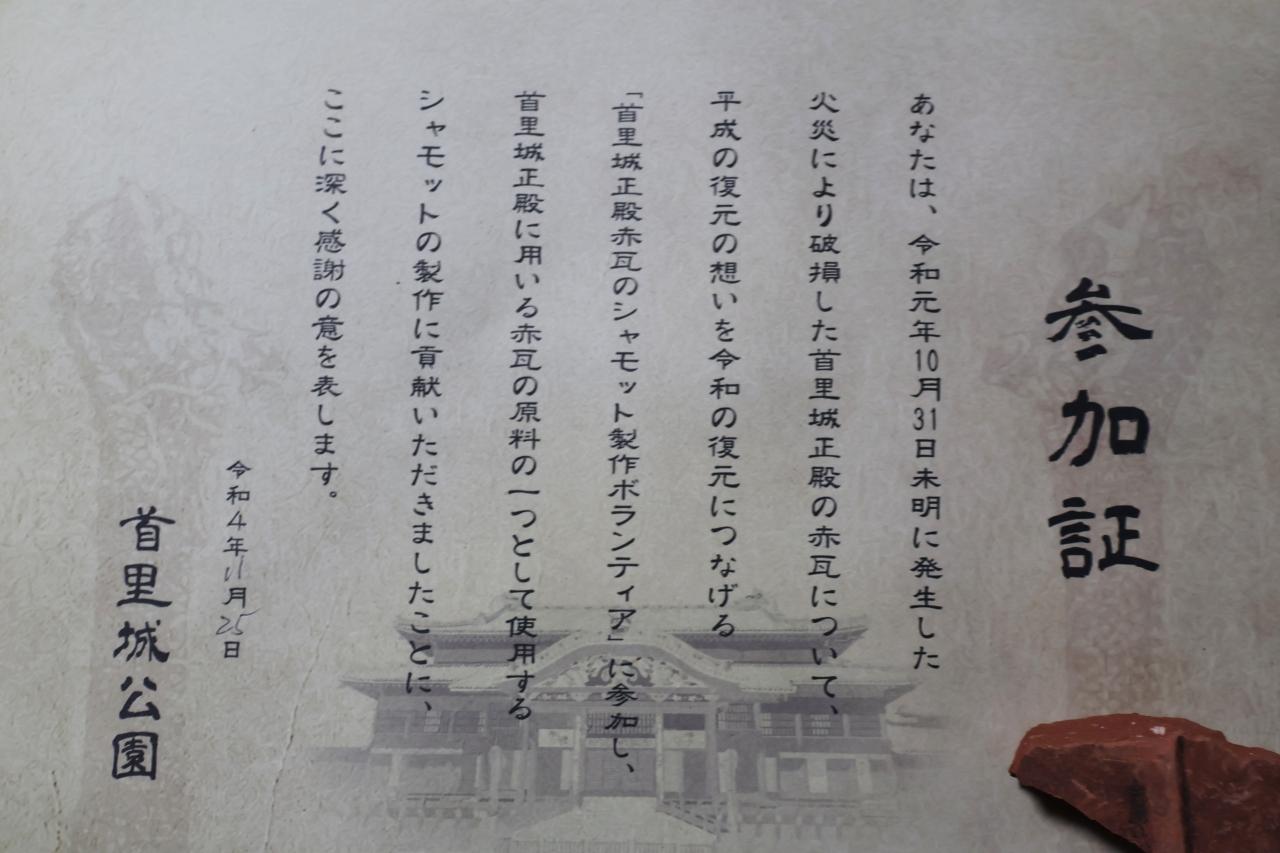 参加証
あなたは、令和元年10月31日未明に発生した
火災により破損した首里城正殿の赤瓦について、
平成の復元の想いを令和の復元につなげる
「首里城正殿赤瓦のシャモット製作ボランティア」に参加し、
首里城正殿に用いる赤瓦の原料の一つとして使用する
シャモットの製作に貢献いただきましたことに、
ここに深く感謝の意を表します。
令和4年11月25日
首里城公園